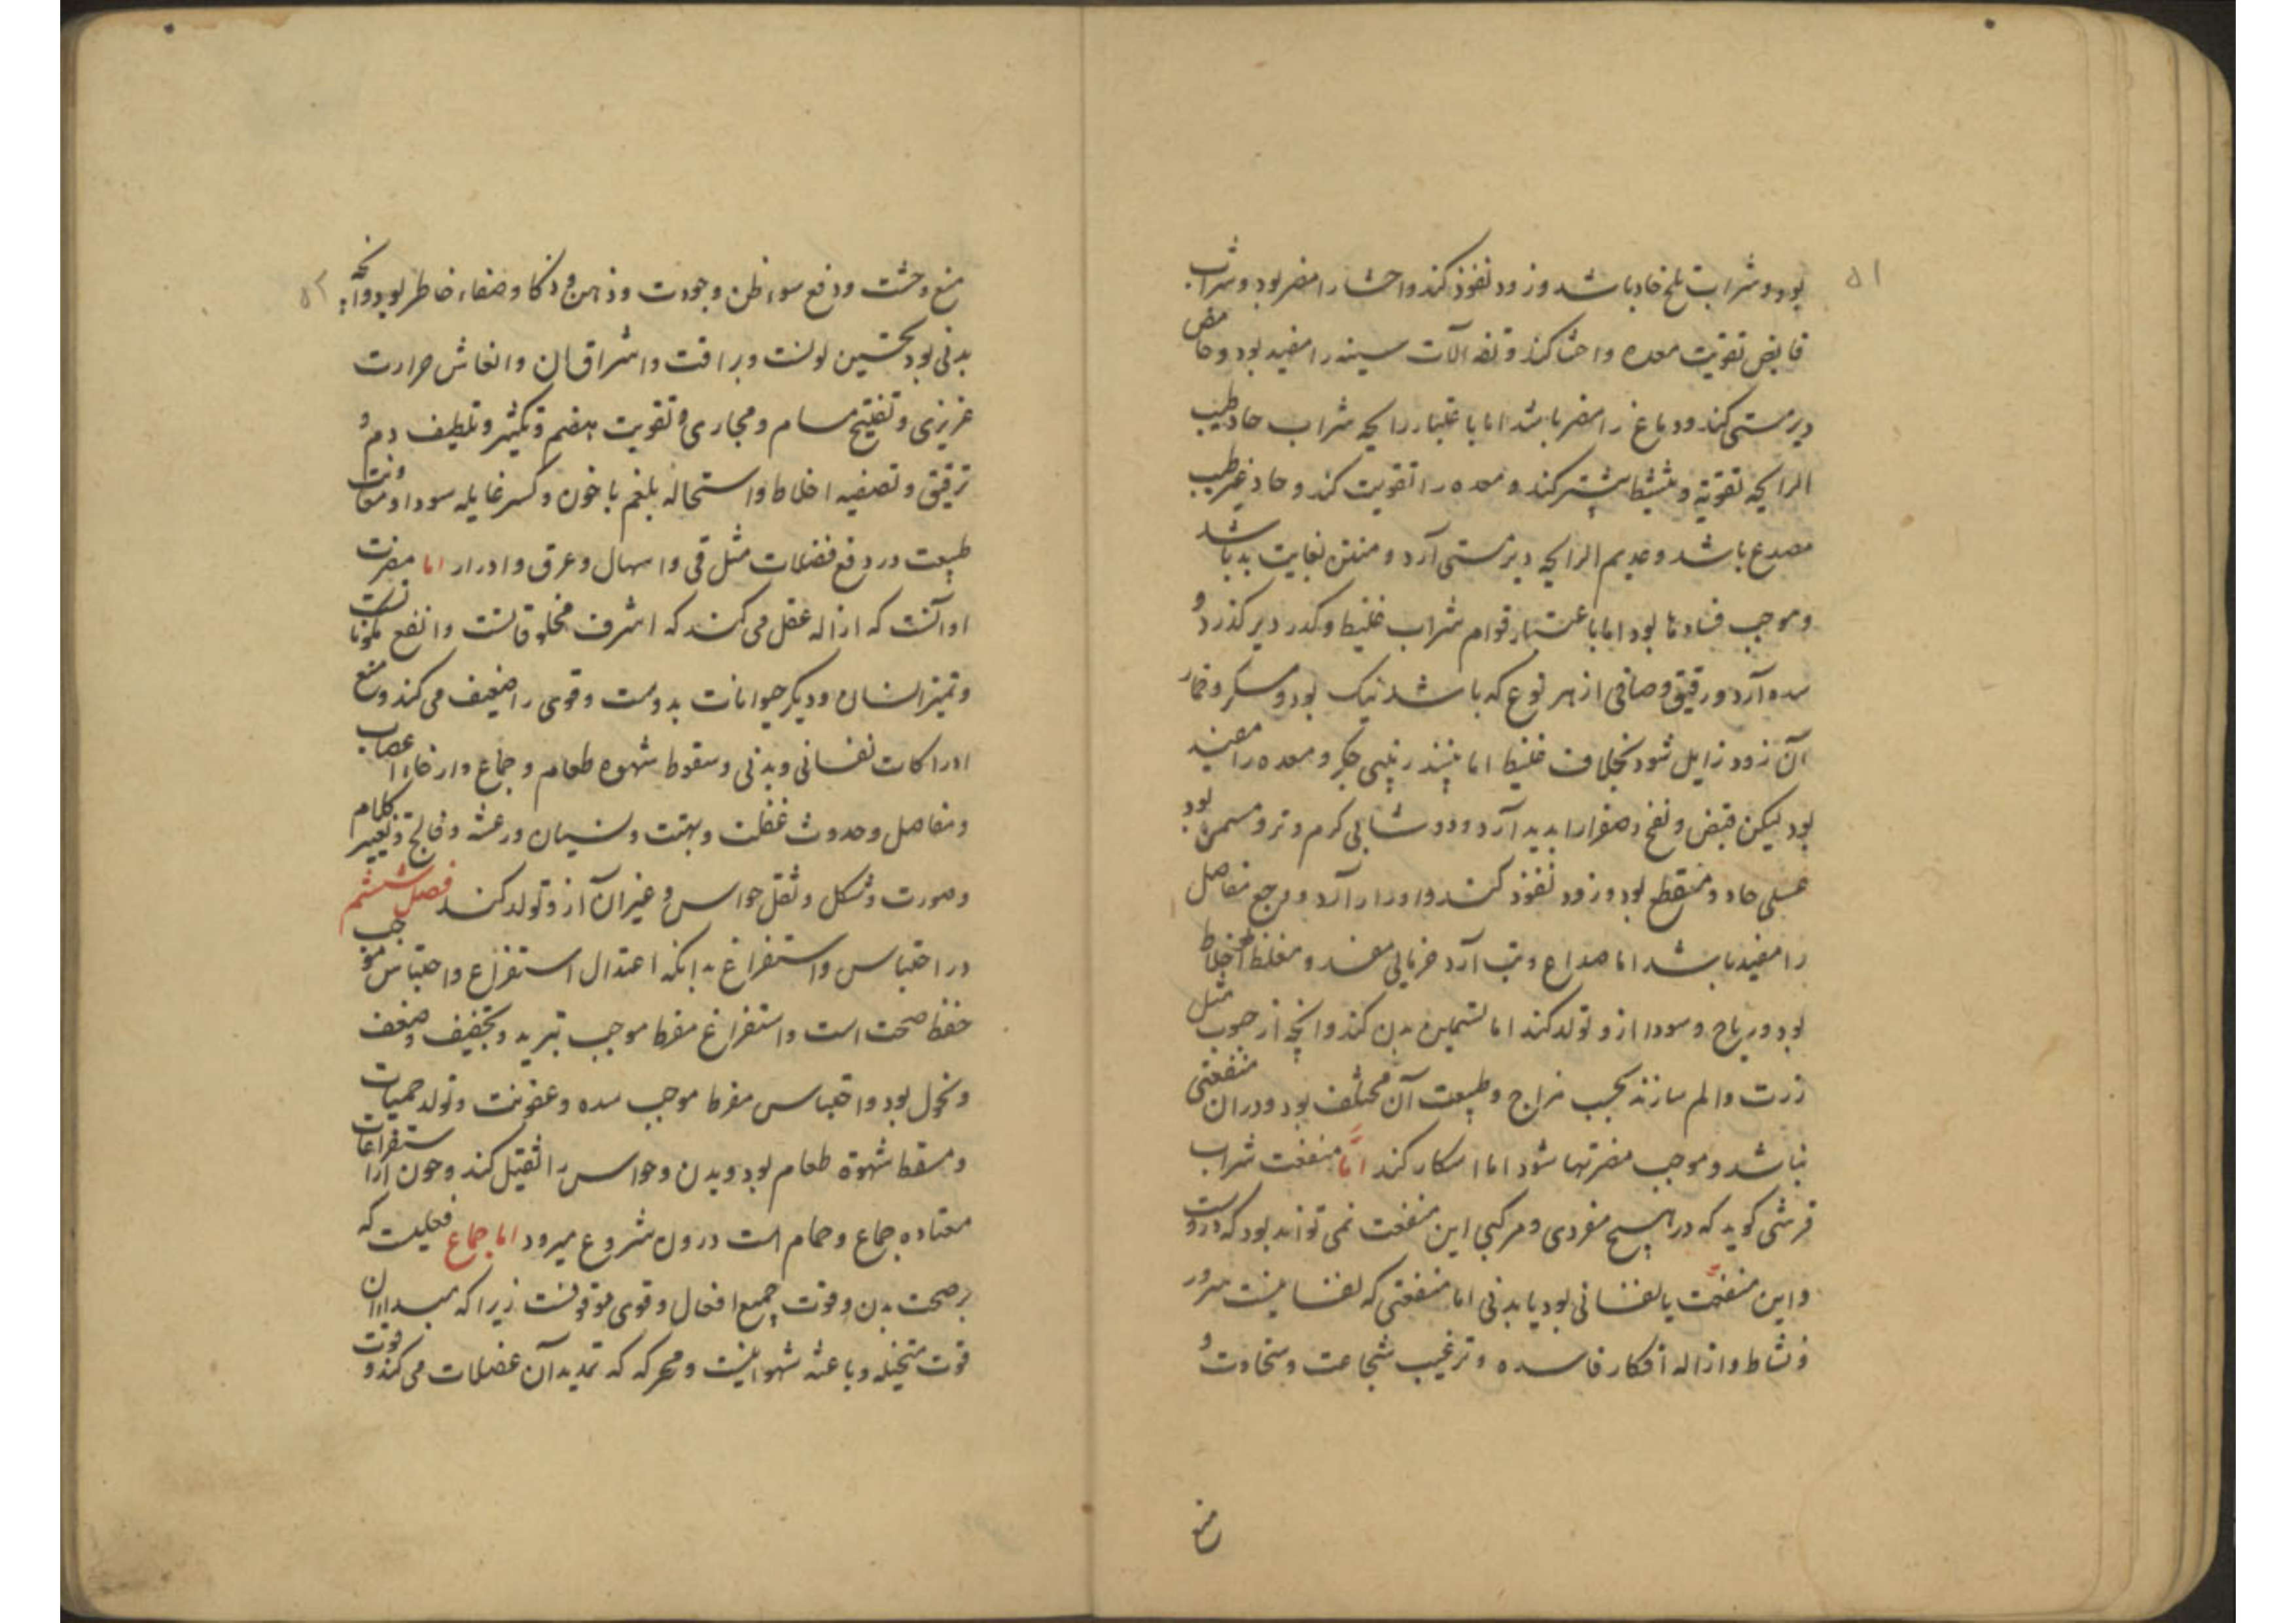 ۵۱
بود و شراب تلخ حاد باشد و زود نفوذ کند و احشا را مضر بود و شراب
قابض تقویت معده و احشا کند و تفه آلات سینه را مفید بود و حامض
دیر مستی کند و دماغ را مضر باشد اما باعتبار رایحه شراب حاد طیب
الرایحه تقویة و تنشیط بیشتر کند و معده را تقویت کند و حاد غیر طیب
مصدع باشد و عدیم الرایحه دیر مستی آرد و منتن بغایت بد باشد
و موجب فسادها بود اما باعتبار قوام شراب غلیظ و کدر دیر گذرد و
سده آرد و رقیق و صافی از هر نوع که باشد نیک بود و مسکر و خمار
آن زود زایل شود بخلاف غلیظ اما نبیذ زبیبی جگر و معده را مفید
بود لیکن قبض و نفخ و صفرا را پدید آرد و دوشابی گرم و تر و مسمن بود
عسلی حاد و مقطع بود و زود نفوذ کند و ادرار آرد و وجع مفاصل
را مفید باشد اما صداع و تب آرد خرمایی مفسد و مغلظ اخلاط
بود و ریاح و سودا ازو تولد کند اما تسمین بدن کند و آنچه از حبوب مثل
ذرت و الم سازند بحسب مزاج و طبیعت آن مختلف بود و در آن منفعتی
نباشد و موجب مضرتها شود اما اسکار کند امّا منفعت شراب
قرشی گوید که در هیچ مفردی و مرکبی این منفعت نمی تواند بود که دروست
و این منفعت یا نفسانی بود یا بدنی اما منفعتی که نفسانیست سرور
و نشاط و ازاله افکار فاسده و ترغیب شجاعت و سخاوت و
منع
۵۲
منع وحشت و دفع سوء ظن و جودت و ذهن و ذکا و صفاء خاطر بود و آنچه
بدنی بود تحسین لونست و براقت و اشراق آن و انعاش حرارت
غریزی و تفتیح مسام و مجاری و تقویت هضم و تکثیر و تلطیف دم و
ترقیق و تصفیه اخلاط و استحاله بلغم با خون و کسر غایله سودا و معاونت
طبیعت در دفع فضلات مثل قی و اسهال و عرق و ادرار اما مضرت
او آنست که ازاله عقل می کند که اشرف مخلوقاتست و انفع مکونات
و تمیز انسان و دیگر حیوانات بدوست و قوی را ضعیف می کند و منع
ادراکات نفسانی و بدنی و سقوط شهوه طعام و جماع و ارخاء اعصاب
و مفاصل و حدوث غفلت و بهتت و نسیان و رعشه و فالج و تغییر کلام
و صورت و شکل و ثقل حواس و غیر آن ازو تولد کند فصل ششم
در احتباس و استفراغ بدانکه اعتدال استفراغ و احتباس موجب
حفظ صحت است و استفراغ مفرط موجب تبرید و تجفیف و ضعف
و نحول بود و احتباس مفرط موجب سده و عفونت و تولد حمیات
و مسقط شهوة طعام بود و بدن و حواس را ثقیل کند و چون از استفراغات
معتاده جماع و حمام است درون شروع میرود اما جماع فعلیست که
بر صحت بدن و قوت جمیع افعال و قوی موقوفست زیرا که مبدا آن
قوت متخیله و باعثه شهوانیست و محرکه که تمدید آن عضلات می کند و قوت